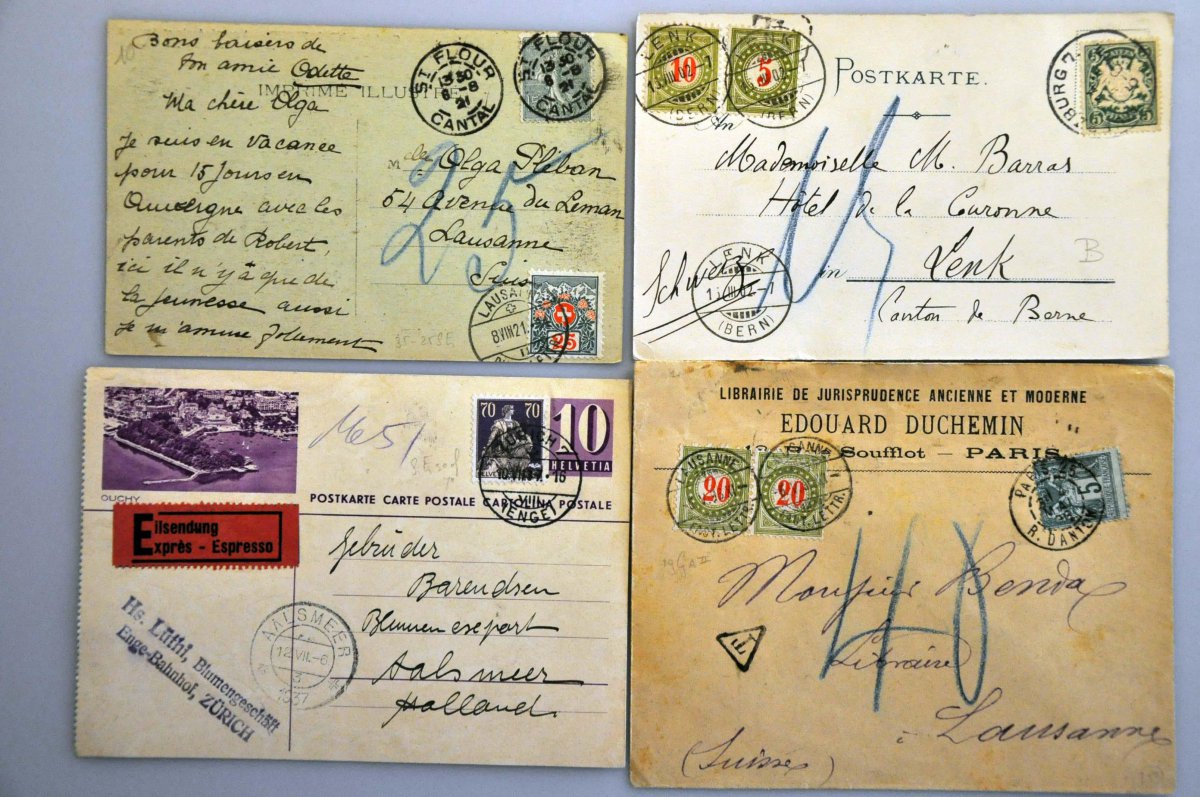 Bons baisers de
ton amie Odette
IMPRIMÉ ILLUSTRÉ
Ma chère Olga
je suis en vacance
pour 15 jours en
Auvergne avec les
parents de Robert,
ici il n'y a que de
la jeunesse aussi
je m'amuse joliement
ST FLOUR
13 30
8-8
21
CANTAL
ST FLOUR
13 30
8-8
21
CANTAL
25
Melle Olga Pléban
54 Avenue du Leman
Lausanne
Suisse
LAUSANNE
8.VIII.21
25
LENK
(BERN)
10
5
LENK
(BERN)
POSTKARTE.
BAYERN
5
An
15
Mademoiselle M. Barras
Hôtel de la Couronne
Schweiz in Lenk
Canton de Berne
LENK
(BERN)
B
OUCHY
1651
70 70
HELVETIA
10
HELVETIA
10.VII.37.-16
(ENGE)
POSTKARTE CARTE POSTALE CARTOLINA POSTALE
Eilsendung
Exprès - Espresso
Gebrüder
Barendsen
Blumenexport
Aalsmeer
Holland.
AALSMEER
12.VII.-6
3
1937
Hs. Lüthi, Blumengeschäft
Enge-Bahnhof, ZÜRICH
LIBRAIRIE DE JURISPRUDENCE ANCIENNE ET MODERNE
EDOUARD DUCHEMIN
Soufflot - PARIS
LAUSANNE
20
20
5
PARIS
R. DANTON
40
Monsieur Benda
Libraire
T
à Lausanne
(Suisse)